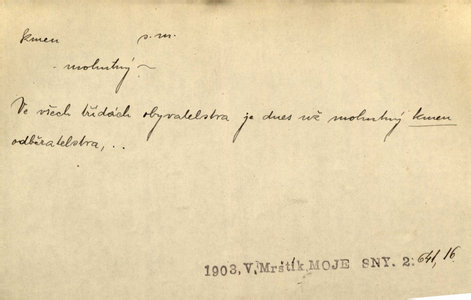 kmen s. m.
- mohutný ~
Ve všech třídách obyvatelstra je dnes už mohutný kmen
odběratelstra, ..
1903, V. Mrštík, MOJE SNY. 2: 641, 16.